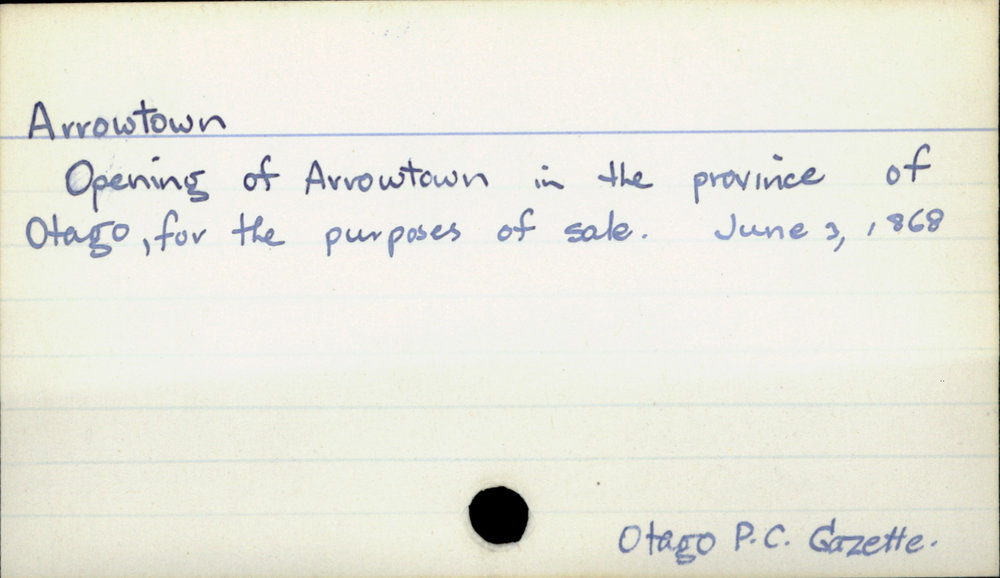 Arrowtown
Opening of Arrowtown in the province of
Otago, for the purposes of sale. June 3, 1868
Otago P.C. Gazette.